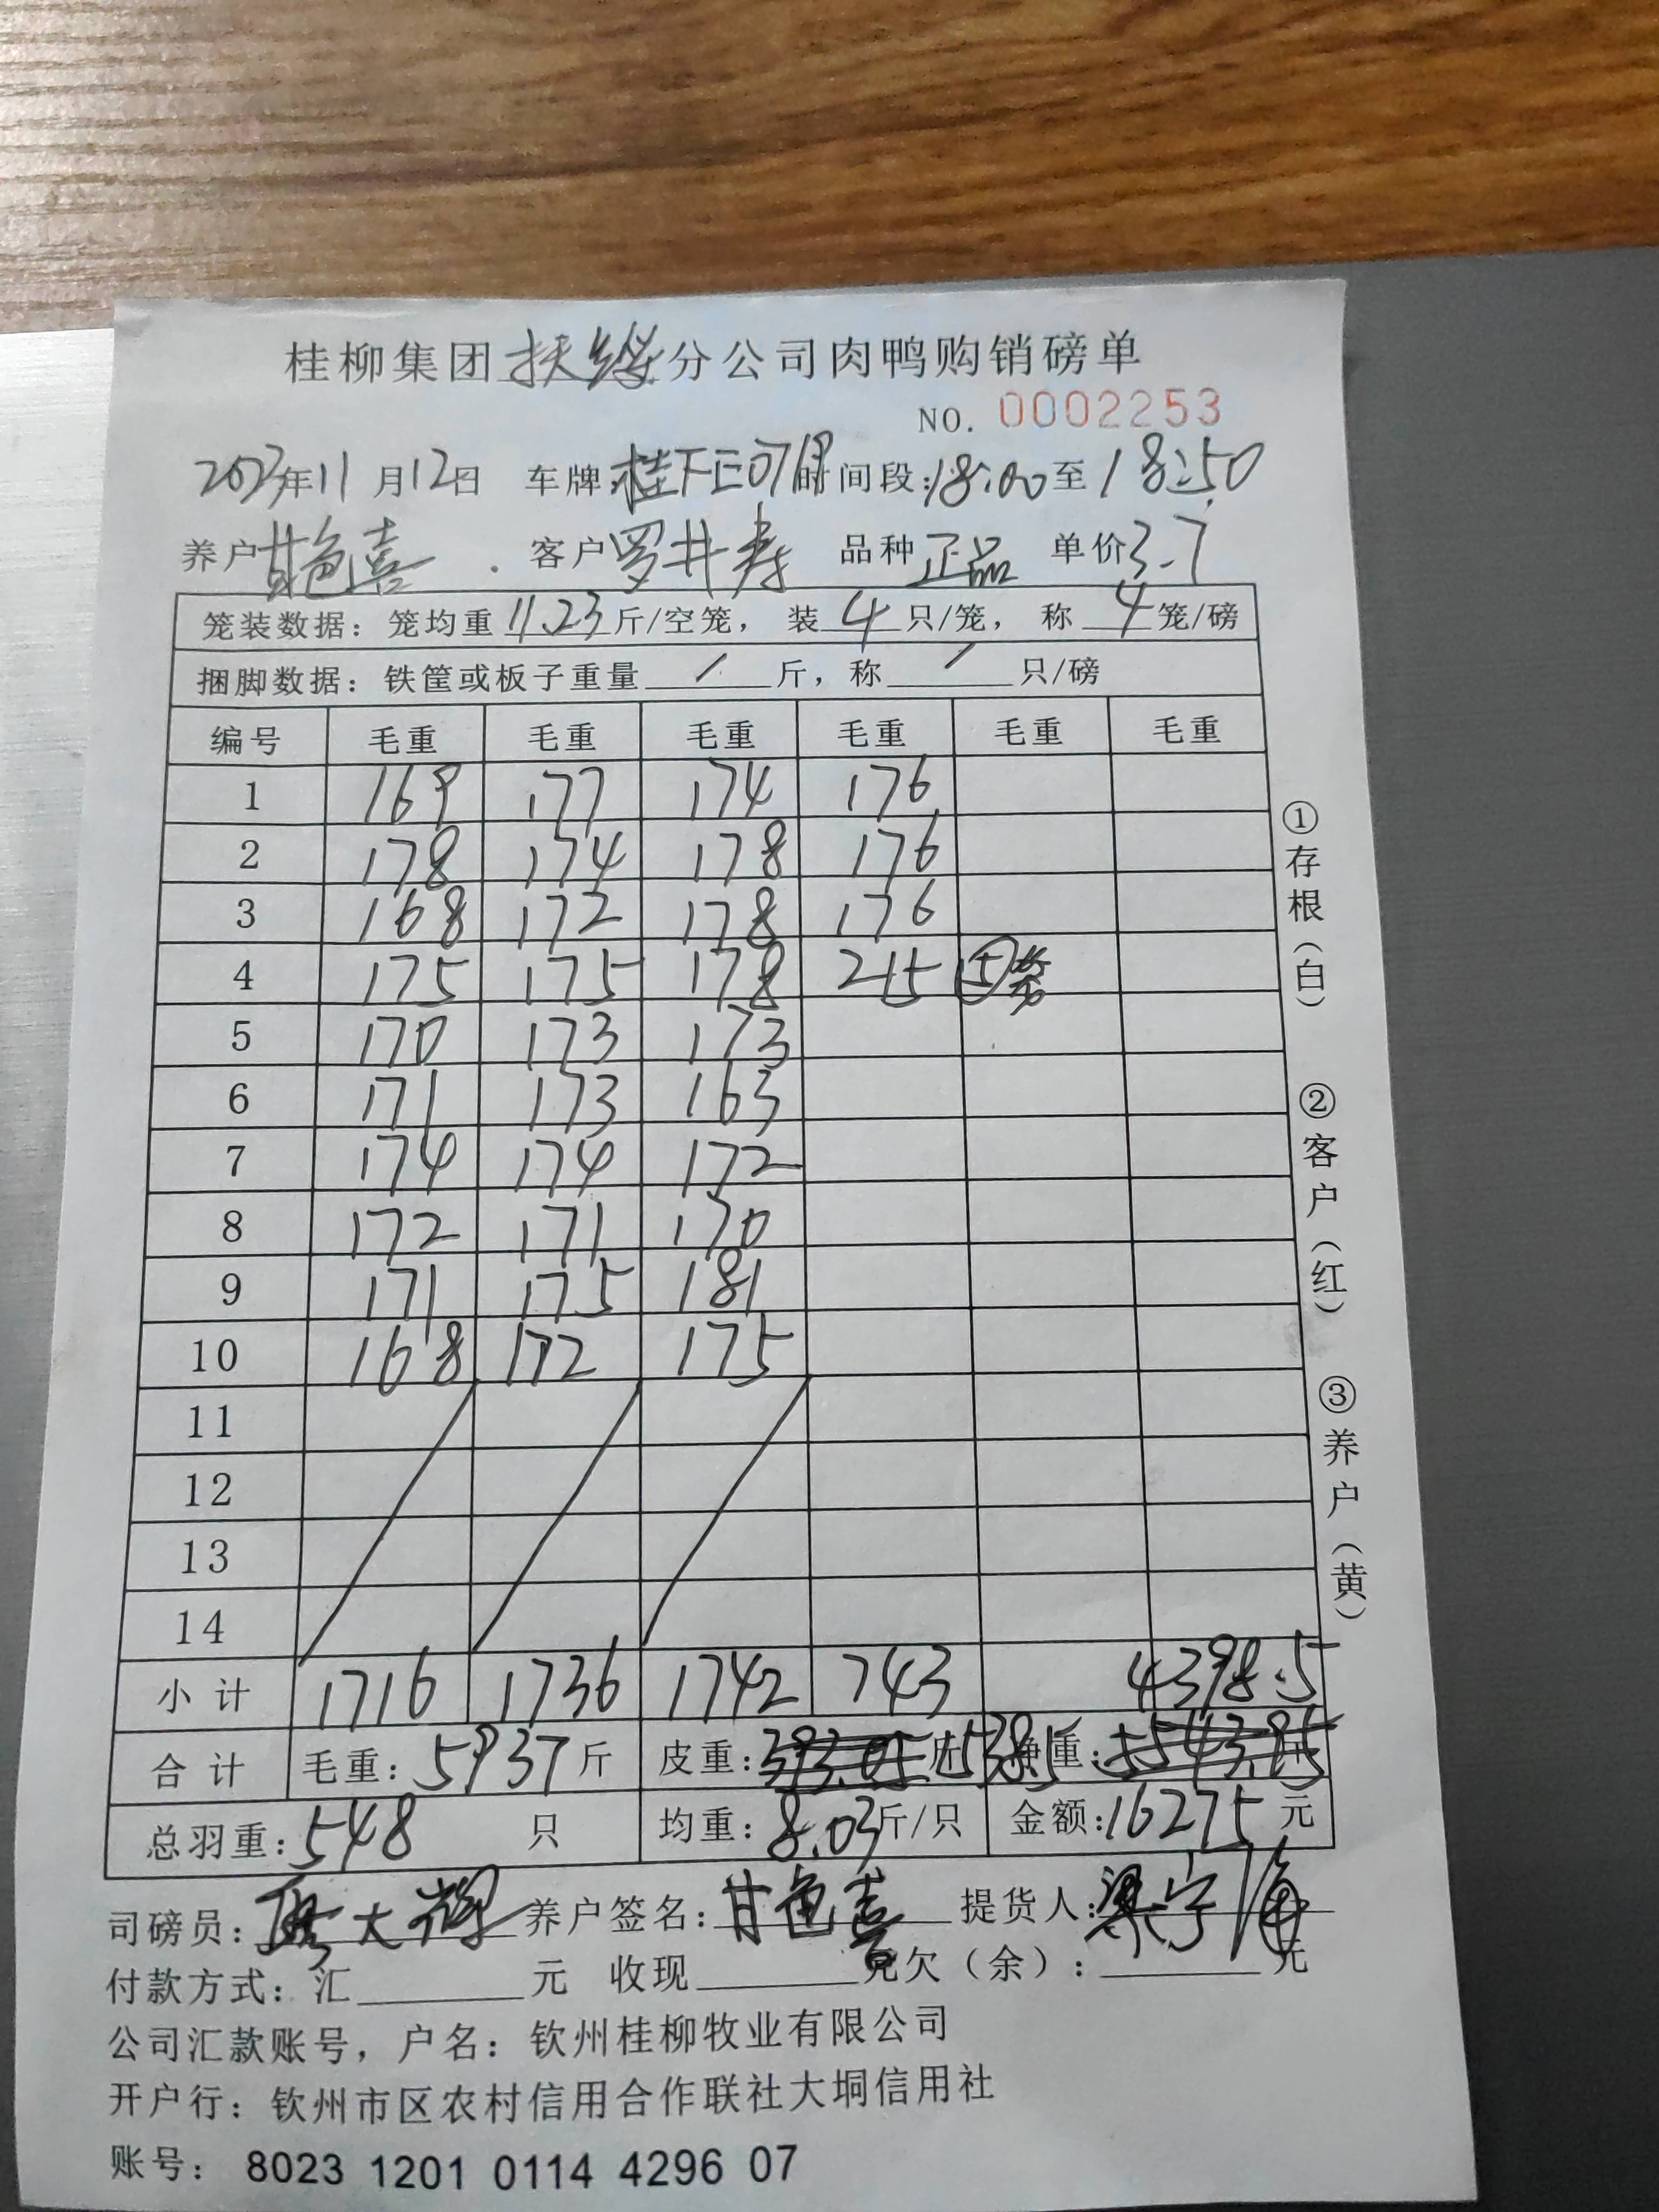 桂柳集团扶绥分公司肉鸭购销磅单
NO. 0002253
2023年11月12日 车牌:桂FE07 时间段:18:00至18:50
养户甘色喜 客户罗井寿 品种正品 单价3.7
笼装数据：笼均重11.23斤/空笼，装4只/笼，称4笼/磅
捆脚数据：铁筐或板子重量/斤，称/只/磅
编号 毛重 毛重 毛重 毛重 毛重 毛重
1 169 177 174 176
2 178 174 178 176
3 168 172 178 176
4 175 175 178 215 ⑤笼
5 170 173 173
6 171 173 163
7 174 174 172
8 172 171 170
9 171 175 181
10 168 172 175
11
12
13
14
小计 1716 1736 1742 743 4398.5
合计 毛重：5937斤 皮重：393.05斤1538.5 净重：5543.95
总羽重：548 只 均重：8.03斤/只 金额：16275元
司磅员： 大 养户签名：甘色喜 提货人：梁宁海
付款方式：汇 元 收现 元欠（余）： 元
公司汇款账号，户名：钦州桂柳牧业有限公司
开户行：钦州市区农村信用合作联社大垌信用社
账号：8023 1201 0114 4296 07
①存根（白）
②客户（红）
③养户（黄）